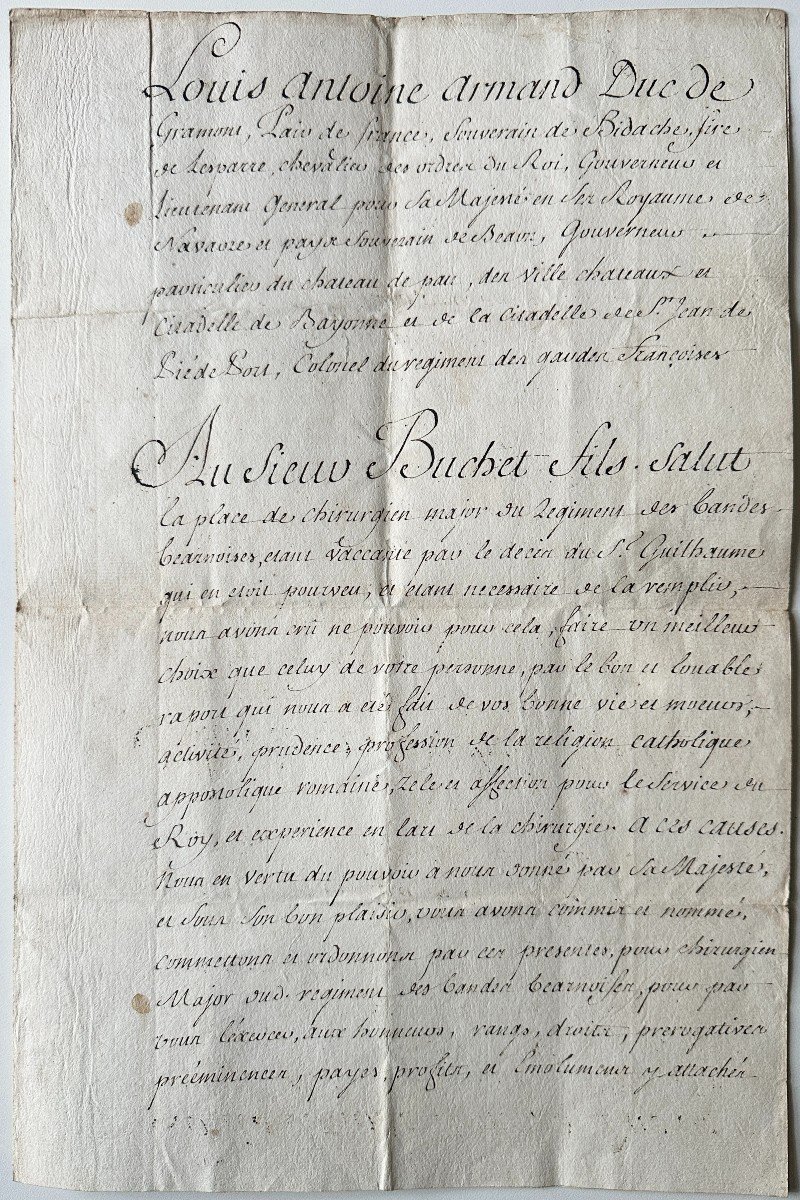 Louis Antoine Armand Duc de
Gramont, Pair de france, Souverain de Bidache, sire
de Lesparre, chevalier des ordres du Roi, Gouverneur et
Lieutenant General pour Sa Majesté en Ses Royaume de
Navarre et pays Souverain de Bearn, Gouverneur
particulier du chateau de pau, des ville chateaux et
Citadelle de Bayonne et de la citadelle de St. Jean de
Pié de Port, Colonel du regiment des gardes Françoises
Au Sieur Buchet fils. Salut
la place de chirurgien major du Regiment des bandes
bearnoises, etant vaccante par le décés du Sr. Guilhaume
qui en etoit pourveu, et etant necessaire de la remplir,
nous avons crû ne pouvoir pour cela, faire un meilleur
choix que celuy de votre personne, par le bon et louable
raport qui nous a eté fait de vos bonne vie et moeurs,
activité, prudence, profession de la religion catholique
appostolique romaine, zele et affection pour le Service du
Roy, et experience en lart de la chirurgie. A ces causes.
Nous en vertu du pouvoir a nous donné par Sa Majesté,
et sous Son bon plaisir, vous avons commis et nommé,
commettons et ordonnons par ces presentes, pour chirurgien
Major dud. regiment des bandes bearnoises, pour par
vous l'éxercer, aux honneurs, rangs, droits, prerogatives
prééminences, payes, profits, et Emolumens y attachés